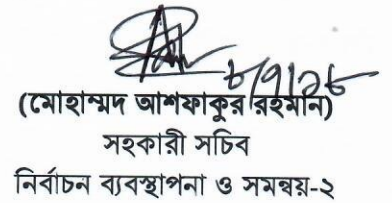 ৮/৭/১৮
(মোহাম্মদ আশফাকুর রহমান)
সহকারী সচিব
নির্বাচন ব্যবস্থাপনা ও সমন্বয়-২